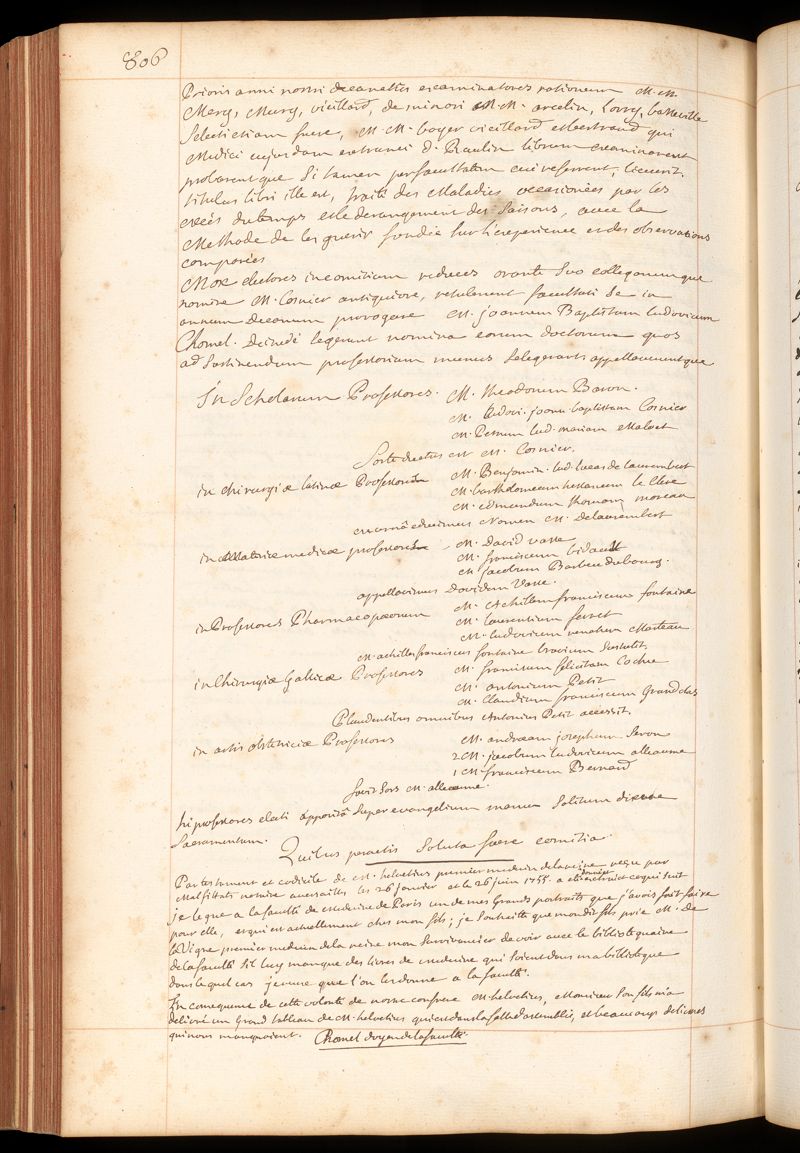 806
Prioris anni nostri decanatus examinatores rationum M.M.
Mery, Murry, vieillard, de minori M.M. arcelin, Lorry, batteville
Selecti etiam fuere, M.M. boyer vieillard et bertrand qui
Medici cujusdam extranei D. Raulin librum examinarent
probarentque si tamen per facultatem cui refferrent, liceret.
titulus libri ille est, traité des Maladies occasionées par les
excés du temps et le derangement des Saisons, avec la
Methode de les guerir fondée sur l'experience et des observations
comparées
Mox electores in comitium reduces orante suo collegarumque
nomine M. Cosnier antiquiore, retulerunt facultati se in
annum Decanum prorogare M. joannem Baptistam Ludovicum
Chomel. Deinde legerunt nomina eorum doctorum quos
ad sustinendum professorium munus selegerant appellaveruntque
In Scholarum Professores. M. theodorum Baron.
M. Ludovi. joan. baptistam Cosnier
M. Petrum Lud. mariam Maloet
Sorte ductus est M. Cosnier,
in chirurgiæ latinæ Professores M. Benjamin. Lud. Lucas de Laurembert
M. bartholomeum tussanum le Clerc
M. edmundum thomam moreau
ex urnâ eduximus Nomen M. Delaurembert
in Materiæ medicæ professores - M. David vasse
M. franciscum bidault
M. jacobum Barbeu dubourg.
appellavimus Davidem Vasse.
in Professores Pharmacopæorum M. Achillem franciscum fontaine
M. Laurentium ferret
M. Ludovicum renatum Marteau
M. achilles franciscus fontaine bravium sustulit,
in Chirurgiæ Gallicæ Professores M. franciscum felicitam Cochu
M. antonium Petit
M. Claudium franciscum Grandclas
Plaudentibus omnibus Antonius Petit accessit,
in artis obstetriciæ Professores M. andræam josephum Seron
2 M. jacobum Ludovicum alleaume
1 M. franciscum Bernard
favit sors M. alleaume.
hi professores electi appositâ super evangelium manu solitum dixere
Sacramentum.
Quibus peractis soluta fuere comitia.
Par testament et codicile de M. helvetius premier medecin de la reine reçu par
Malfillatz notaire a versailles les 26 janvier et le 26 juin 1755. a eté ce qui suit
je legue a la faculté de medecine de Paris un de mes grands portraits que j'avois fait faire
pour elle, et qui est actuellement chez mon fils; je souhaitte que mon dit fils prie M. de
la Vigne premier medecin de la reine mon survivancier de voir avec le bibliotequaire
de la faculté s'il luy manque des livres de medecine qui soient dans ma biblioteque
dans le quel cas je veux que l'on les donne a la faculté.
En consequence de cette volonté de notre confrere M. helvetius, Monsieur son fils m'a
delivré un Grand tableau de M. helvetius qui est dans la salle d'assemblée, et beaucoup de livres
qui nous manquoient. Chomel doyen de la faculté.